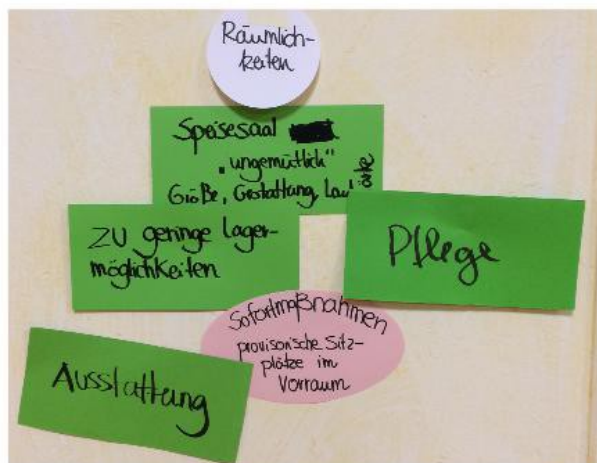 Räumlich-
keiten
Speisesaal
„ungemütlich"
Größe, Gestaltung, Lautstärke
zu geringe Lager-
möglichkeiten
Pflege
Sofortmaßnahmen
provisorische Sitz-
plätze im
Vorraum
Ausstattung